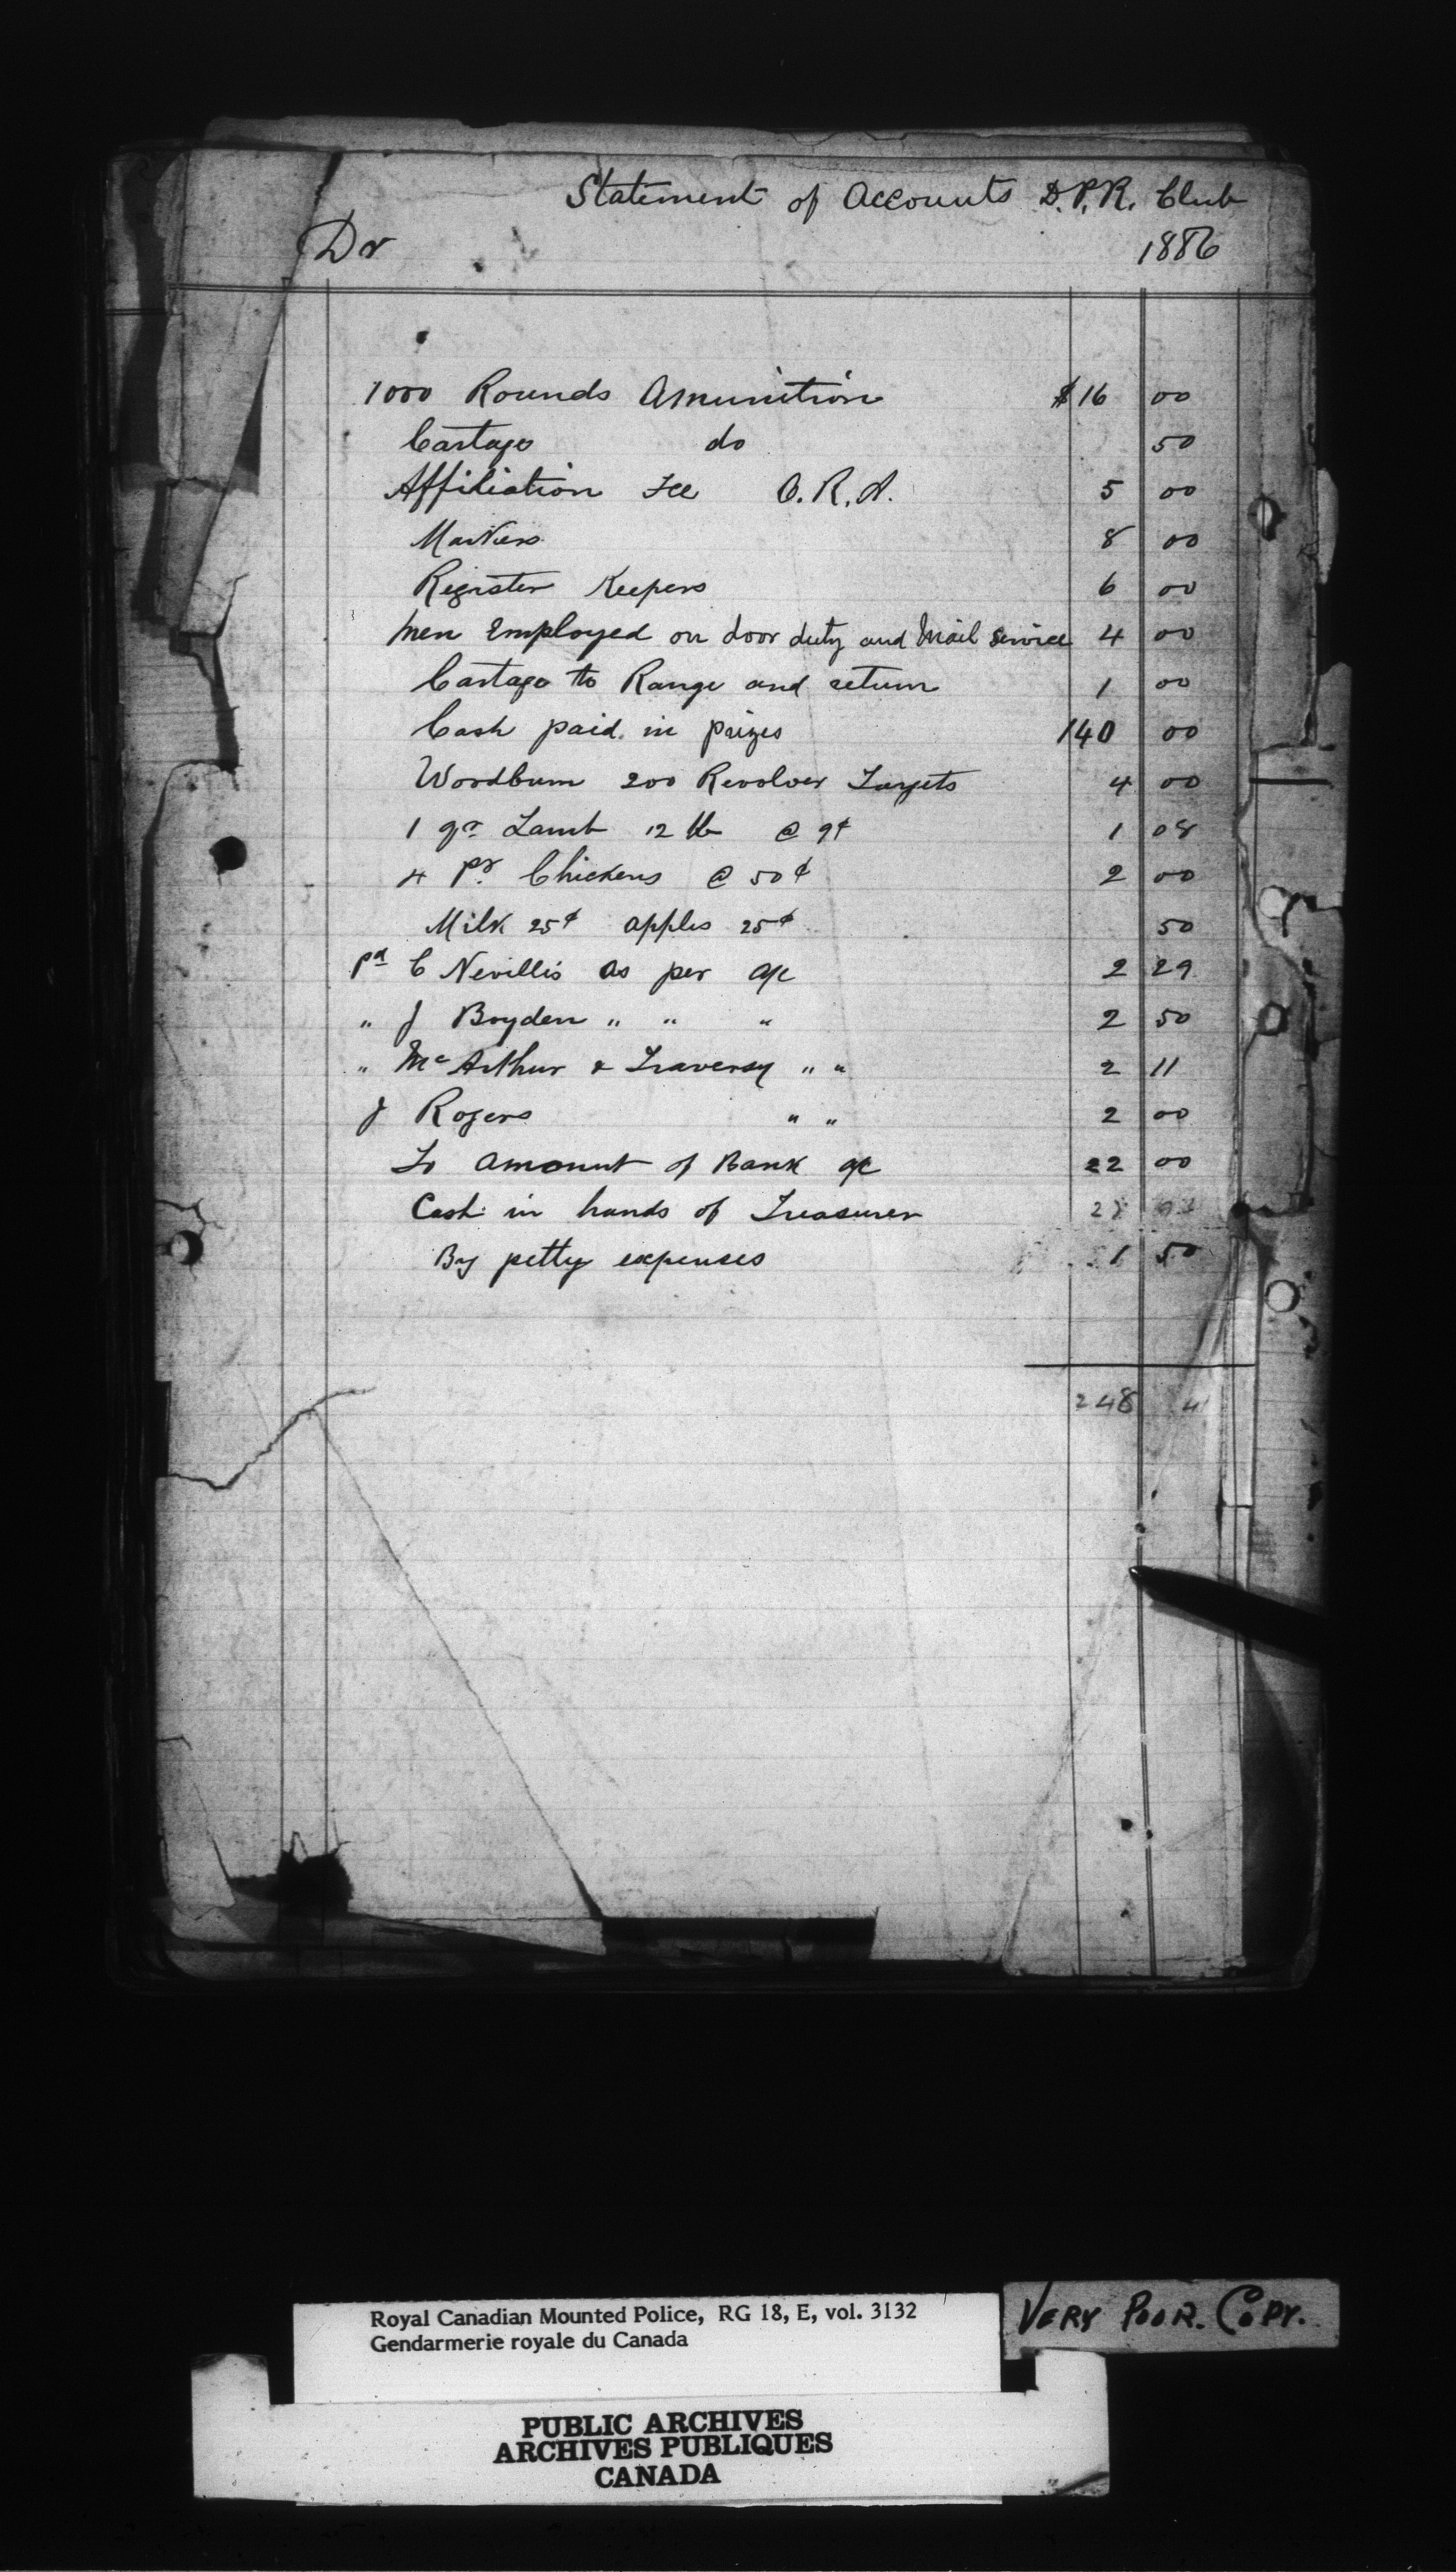 Statement of Accounts D.P.R. Club
Dr 1886
1000 Rounds Amunition $16 00
Cartage do 50
Affiliation Fee O.R.A. 5 00
Markers 8 00
Register Keepers 6 00
Men Employed on door duty and Mail Service 4 00
Cartage to Range and return 1 00
Cash paid in prizes 140 00
Woodburn 200 Revolver Targets 4 00
1 qr Lamb 12 lb @ 9¢ 1 08
4 pr. Chickens @ 50¢ 2 00
Milk 25¢ apples 25¢ 50
pd C Nevillis as per a/c 2 29
" J Boyden " " " 2 50
" McArthur & Traversy " " 2 11
J Rogers " " 2 00
To amount of Bank a/c 22 00
Cash in hands of Treasurer 27 93
By petty expenses 1 50
248 41
Royal Canadian Mounted Police, RG 18, E, vol. 3132
Gendarmerie royale du Canada
VERY POOR. COPY.
PUBLIC ARCHIVES
ARCHIVES PUBLIQUES
CANADA